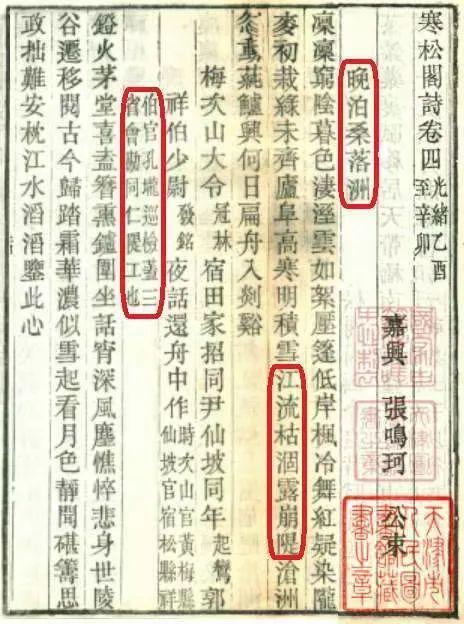 寒松閣詩卷四 光緒乙酉至辛卯
嘉興 張鳴珂 公束
晚泊桑落洲
凜凜窮陰暮色淒溼雲如絮壓篷低岸楓冷舞紅疑染隴
麥初栽綠未齊廬阜高寒明積雪江流枯涸露崩隄滄洲
忽動蓴鱸興何日扁舟入剡谿
梅次山大令 冠林 宿田家招同尹仙坡同年 起鸞 郭
祥伯少尉 發銘 夜話還舟中作 時次山官黃梅縣仙坡官宿松縣祥
伯官孔壠巡檢蓋三省會勘同仁隄工也
鐙火茅堂喜盍簪熏鑪圍坐話宵深風塵憔悴悲身世陵
谷遷移閱古今歸踏霜華濃似雪起看月色靜聞碪籌思
政拙難安枕江水滔滔鑒此心
天津市人民圖書館藏書之章